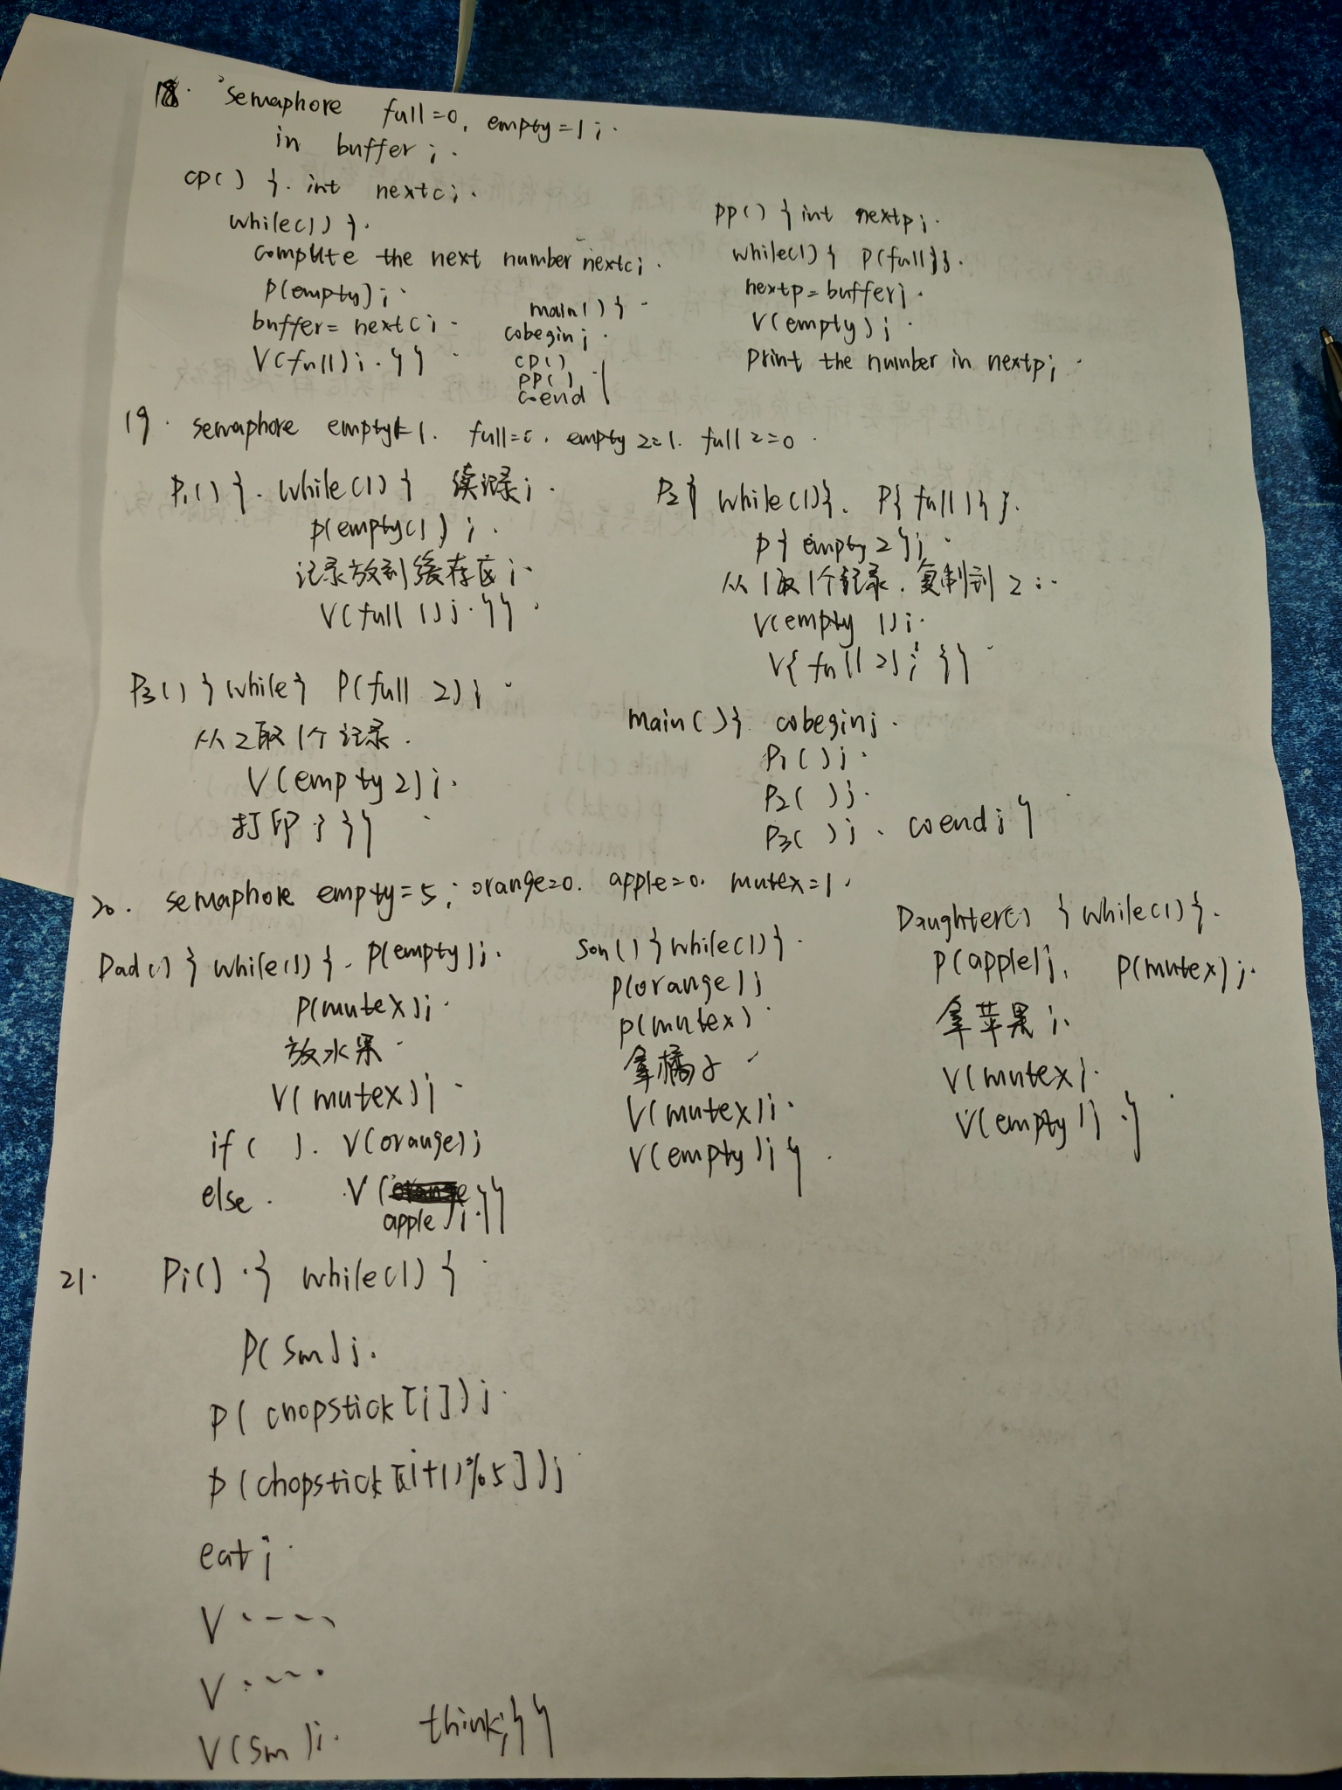 18. semaphore full=0, empty=1;
in buffer;
cp() { int nextc;
while(1) {
compute the next number nextc;
P(empty);
buffer = nextc;
V(full); }}
main() {
cobegin;
cp()
pp()
coend }
pp() { int nextp;
while(1) { P(full);
nextp = buffer;
V(empty);
print the number in nextp;
19. semaphore empty1=1. full=0. empty 2=1. full 2=0
P1() { while(1) { 读记录;
P(empty(1);
记录放到缓存区;
V(full 1); }}
P2 { while(1) { P{ full 1 };
P{ empty 2 };
从1取1个记录, 复制到2;
V(empty 1);
V{ full 2); }}
P3() { while { P(full 2);
从2取1个记录.
V(empty 2);
打印; }}
main() { cobegin;
P1( );
P2( );
P3( ); coend; }
20. semaphore empty=5; orange=0. apple=0. mutex=1.
Dad() { while(1) { P(empty);
P(mutex);
放水果
V(mutex);
if ( ). V(orange);
else. V(apple); }}
Son() { while(1) {
P(orange);
P(mutex)
拿橘子
V(mutex);
V(empty); }
Daughter() { while(1) {
P(apple); P(mutex);
拿苹果;
V(mutex)
V(empty); }
21. Pi() { while(1) {
P(Sm);
P(chopstick[i]);
P(chopstick[i+1)%5]);
eat;
V ----
V ----
V(Sm); think; }}